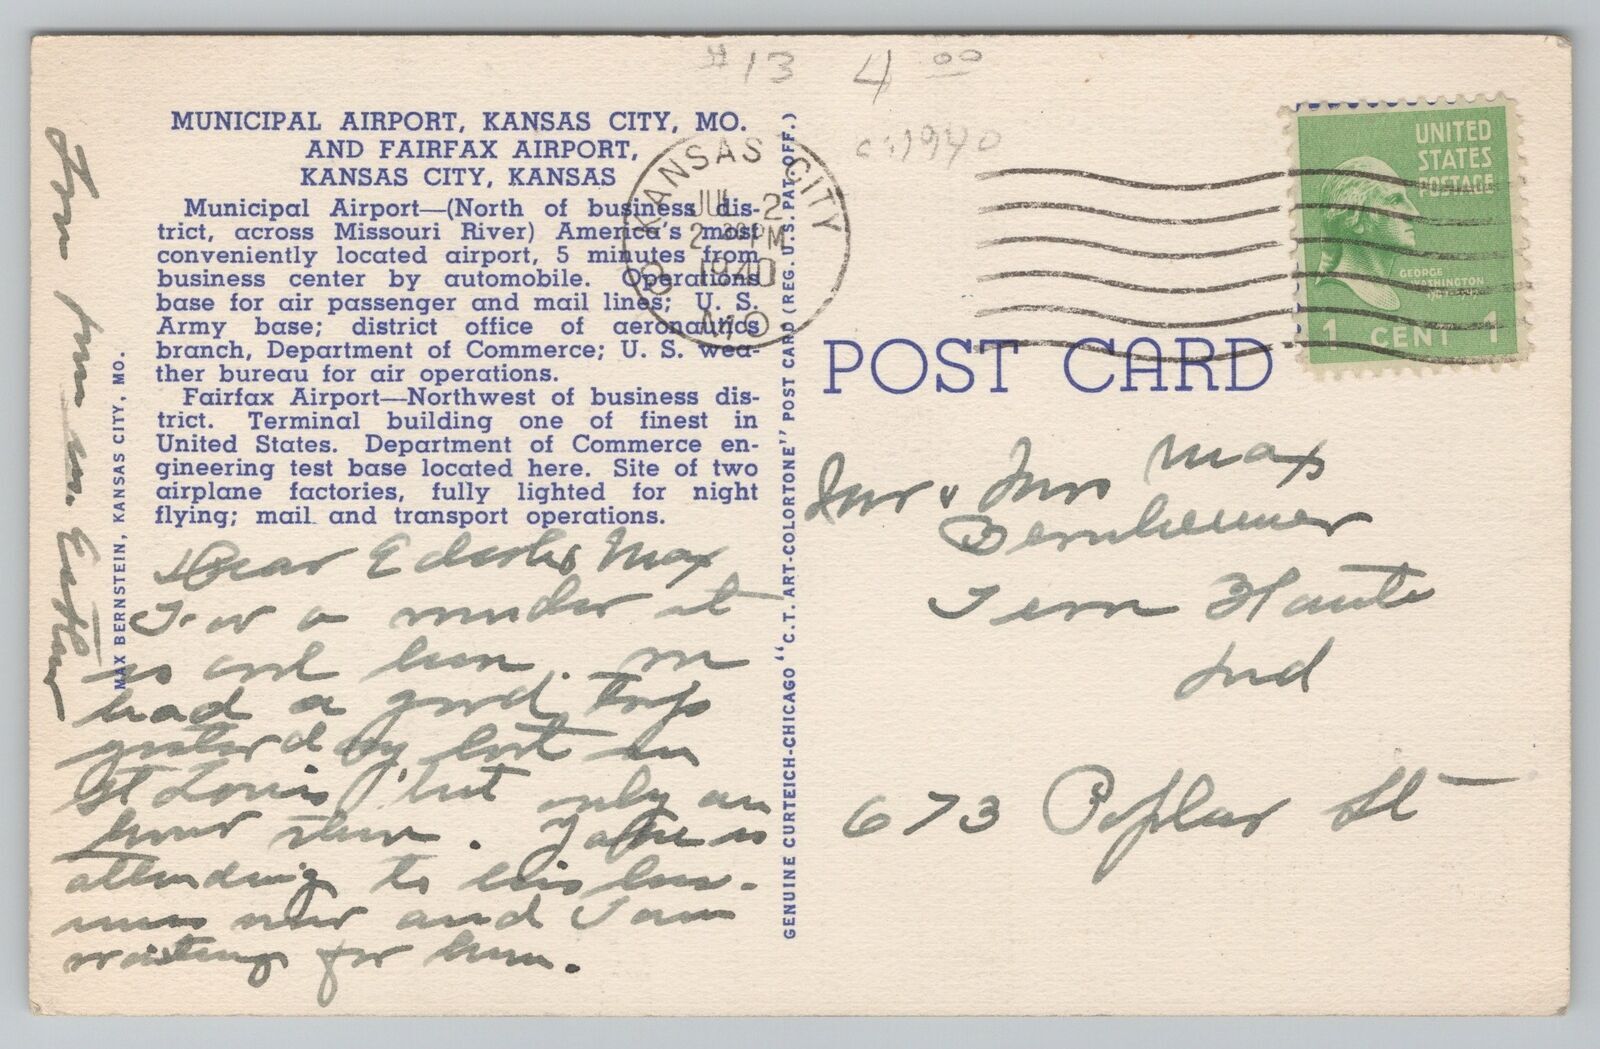 #13 4 00
c: 1940
MUNICIPAL AIRPORT, KANSAS CITY, MO.
AND FAIRFAX AIRPORT,
KANSAS CITY, KANSAS
Municipal Airport—(North of business dis-
trict, across Missouri River) America's most
conveniently located airport, 5 minutes from
business center by automobile. Operations
base for air passenger and mail lines; U. S.
Army base; district office of aeronautics
branch, Department of Commerce; U. S. wea-
ther bureau for air operations.
Fairfax Airport—Northwest of business dis-
trict. Terminal building one of finest in
United States. Department of Commerce en-
gineering test base located here. Site of two
airplane factories, fully lighted for night
flying; mail and transport operations.
Dear & Max
For a it
is cool here. We
had a good trip
yesterday lost in
St Louis, but only an
hour there. is
attending to his bus-
iness now and I am
waiting for him.
Love from us. Esther
MAX BERNSTEIN, KANSAS CITY, MO.
GENUINE CURTEICH-CHICAGO "C.T. ART-COLORTONE" POST CARD (REG. U.S. PAT. OFF.)
KANSAS CITY
JUL 2
2 30 PM
1940
MO
UNITED
STATES
POSTAGE
GEORGE
WASHINGTON
1 CENT 1
POST CARD
Mr & Mrs Max
Bernheimer
Terre Haute
Ind
673 Poplar St